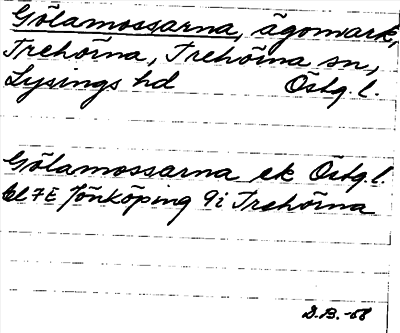 Gölamossarna, ägomark,
Trehörna, Trehörna sn,
Lysings hd Östg. l.
Gölamossarna ek Östg. l.
bl 7E Jönköping 9i Trehörna
D.B. -68